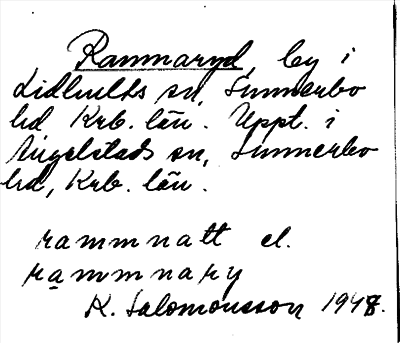 Rammaryd, by i
Lidhults sn, Sunnerbo
hd Krb. län. Uppt. i
Angelstads sn, Sunnerbo
hd, Krb. län.
rammnatt el.
rammnary
K. Salomonsson 1948.